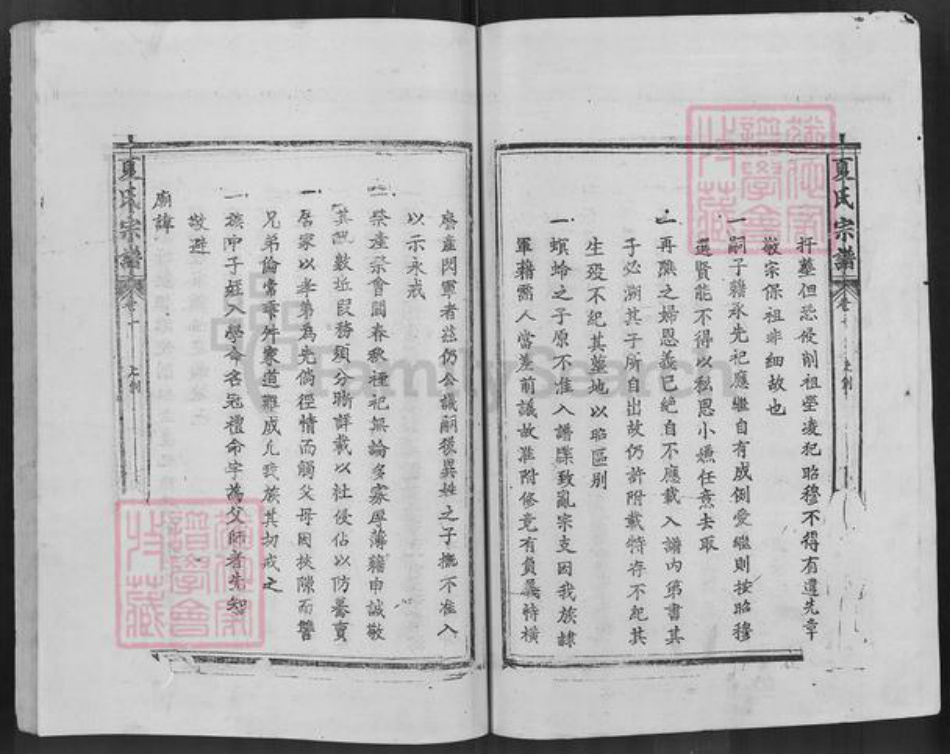 夏氏宗譜
扦塋但恐侵削祖塋凌犯昭穆不得有違先章
敬宗保祖非細故也
一嗣子賴承先祀應繼自有成例愛繼則按昭穆
選賢能不得以私恩小嫌任意去取
一再醮之婦恩義已絕自不應載入譜內第書其
子必溯其子所自出故仍許附載特存不紀其
生歿不紀其塋地以昭區別
一螟蛉之子原不准入譜牒致亂宗支因我族隸
軍籍需人當差前議故准附修竟有負暴特橫
產鬧軍者茲仍公議嗣後異姓之子概不准入
以示永戒
一祭產祭會關春秋禋祀無論多寡厚薄藉申誠敬
其畝數坵段務須分晰詳載以杜侵佔以防盜賣
一居家以孝弟為先倘徑情而觸父母因挾隙而讐
兄弟倫常乖舛家道難成凡我族其切戒之
一族中子姪入學命名冠禮命字為父師者先知
敬避
廟諱
夏氏宗譜
FamilySearch